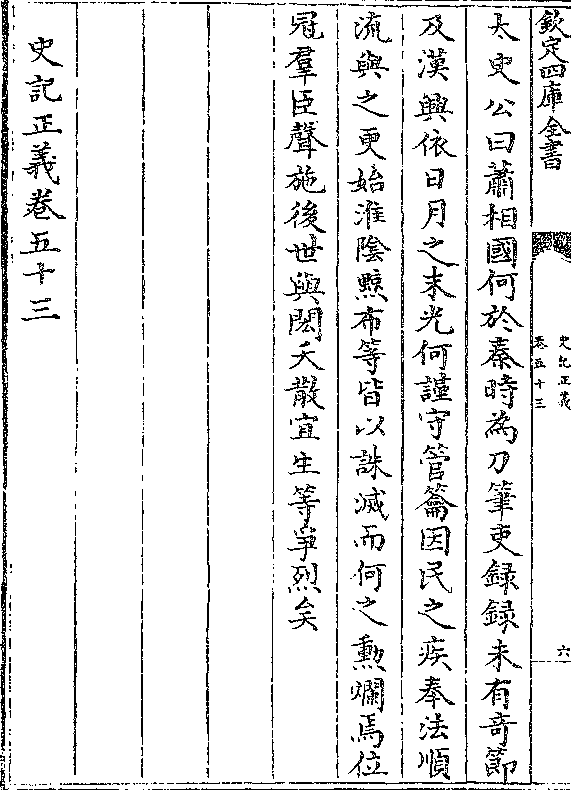 欽定四庫全書
史記正義
卷五十三
六
太史公曰蕭相國何於秦時為刀筆吏録録未有竒節
及漢興依日月之末光何謹守管籥因民之疾奉法順
流與之更始淮陰黥布等皆以誅滅而何之勲爛焉位
冠羣臣聲施後世與閎夭散宜生等爭烈矣
史記正義卷五十三